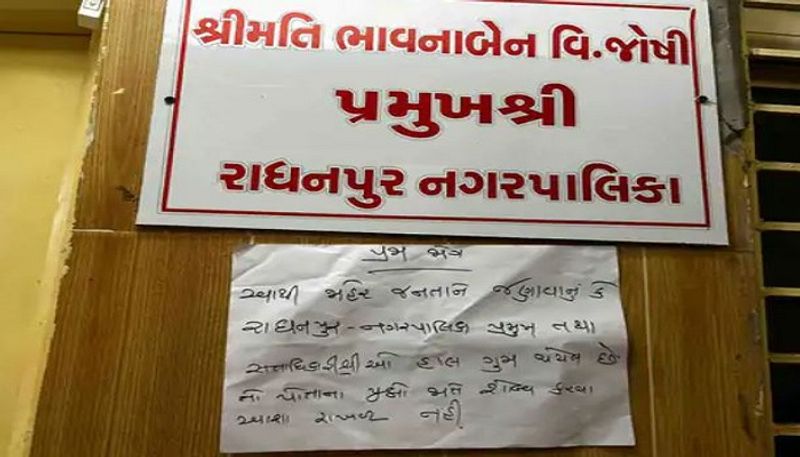 શ્રીમતિ ભાવનાબેન વિ.જોષી
પ્રમુખશ્રી
રાધનપુર નગરપાલિકા
આથી જાહેર જનતાને જણાવાનું કે
રાધનપુર - નગરપાલિકા પ્રમુખ તથા
સત્તાધિકારીશ્રીઓ હાલ ગુમ થયેલ છે
તો પોતાના
આશા રાખવી નહી